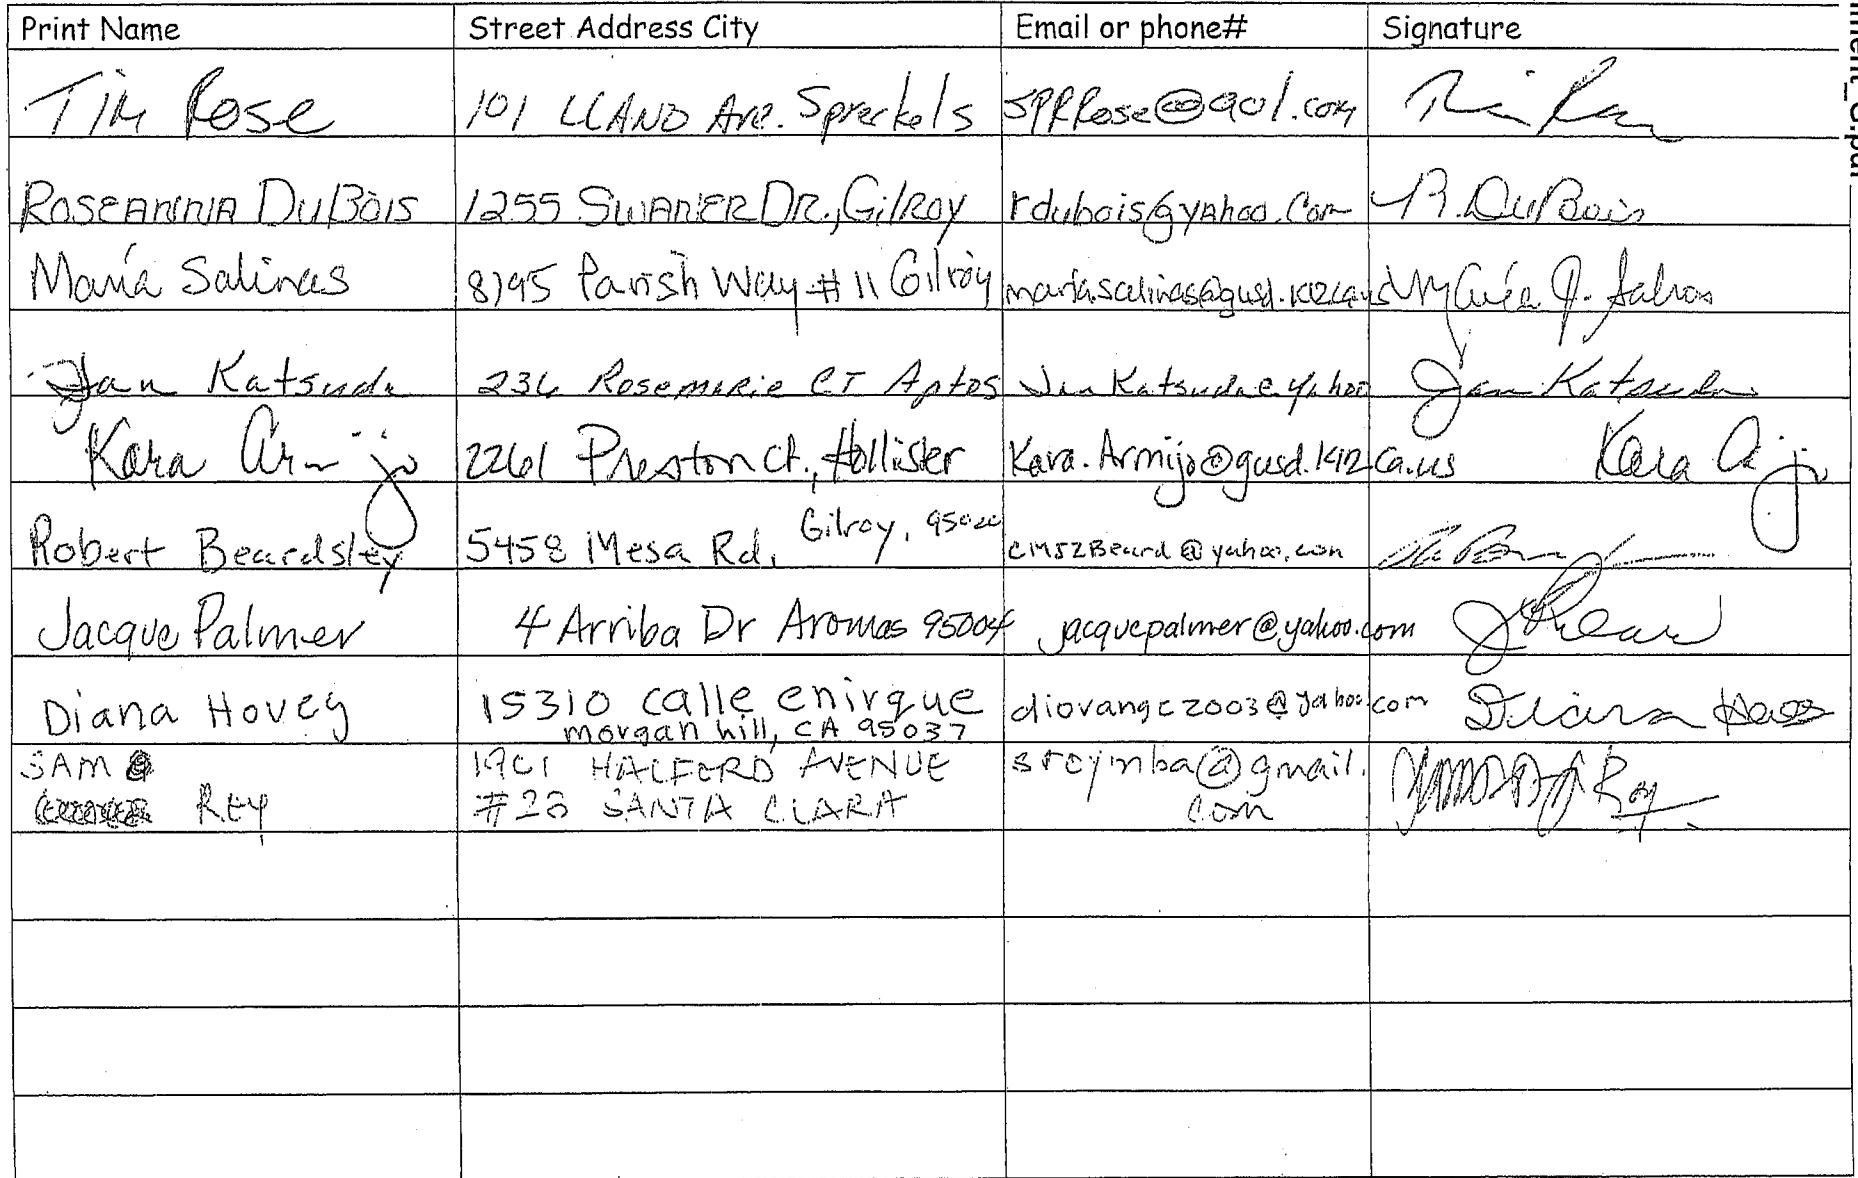 Print Name Street Address City Email or phone# Signature
Tim Rose 101 LLANO Ave. Spreckels SPRRose@aol.com
ROSEANNA DuBois 1255 SWANER DR., Gilroy rdubois@yahoo.com R. DuBois
María Salinas 8795 Parish Way #11 Gilroy maria.salinas@gusd.k12.ca.us
Jan Katsuda 236 Rosemarie CT Aptos Jan Katsuda@yahoo Jan Katsuda
Kara Armijo 2261 Preston Ct., Hollister Kara.Armijo@gusd.k12.ca.us Kara
Robert Beardsley 5458 Mesa Rd, Gilroy, 95020 @yahoo.com
Jacque Palmer 4 Arriba Dr Aromas 95004 jacquepalmer@yahoo.com
Diana Hovey 15310 calle enirque diovangc2003@yahoo.com Diana
morgan hill, CA 95037
SAM 1901 HALFORD AVENUE sreymba@gmail.
REY #28 SANTA CLARA com Rey